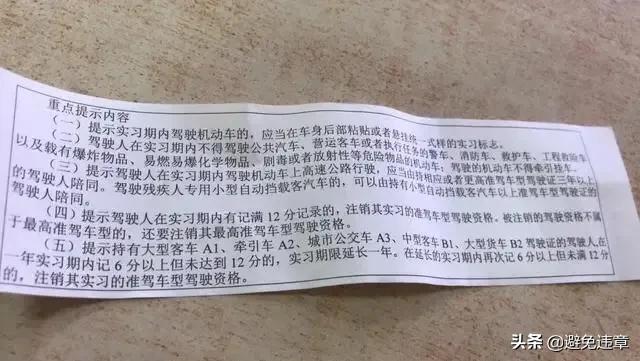 重点提示内容
（一）提示实习期内驾驶机动车的，应当在车身后部粘贴或者悬挂统一式样的实习标志。
（二）驾驶人在实习期内不得驾驶公共汽车、营运客车或者执行任务的警车、消防车、救护车、工程救险车
以及载有爆炸物品、易燃易爆化学物品、剧毒或者放射性等危险物品的机动车；驾驶的机动车不得牵引挂车。
（三）提示驾驶人在实习期内驾驶机动车上高速公路行驶，应当由持相应或者更高准驾车型驾驶证三年以上
的驾驶人陪同。驾驶残疾人专用小型自动挡载客汽车的，可以由持有小型自动挡载客汽车以上准驾车型驾驶证的
驾驶人陪同。
（四）提示驾驶人在实习期内有记满 12 分记录的，注销其实习的准驾车型驾驶资格。被注销的驾驶资格不属
于最高准驾车型的，还要注销其最高准驾车型驾驶资格。
（五）提示持有大型客车 A1、牵引车 A2、城市公交车 A3、中型客车 B1、大型货车 B2 驾驶证的驾驶人在
一年实习期内记 6 分以上但未达到 12 分的，实习期限延长一年。在延长的实习期内再次记 6 分以上但未满 12 分
的，注销其实习的准驾车型驾驶资格。
头条 @避免违章